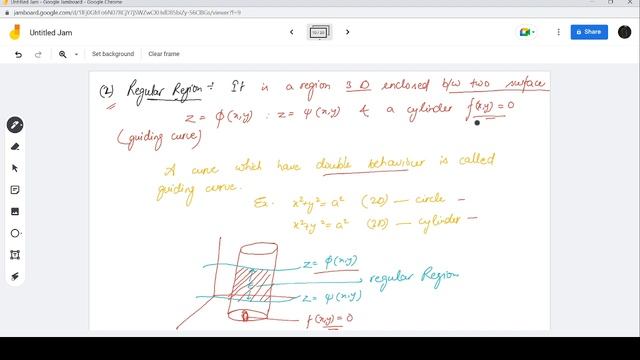 Untitled Jam - Google Jamboard - Google Chrome
Untitled Jam
10 / 20
Share
Set background
Clear frame
(2) Regular Region :- It is a region 3D enclosed b/w two surface
z = φ(x,y) ; z = ψ(x,y) & a cylinder f(x,y) = 0
(guiding curve)
A curve which have double behaviour is called
guiding curve.
Ex. x²+y² = a² (2D) — circle
x²+y² = a² (3D) — cylinder
z = φ(x,y)
regular Region
z = ψ(x,y)
f(x,y) = 0